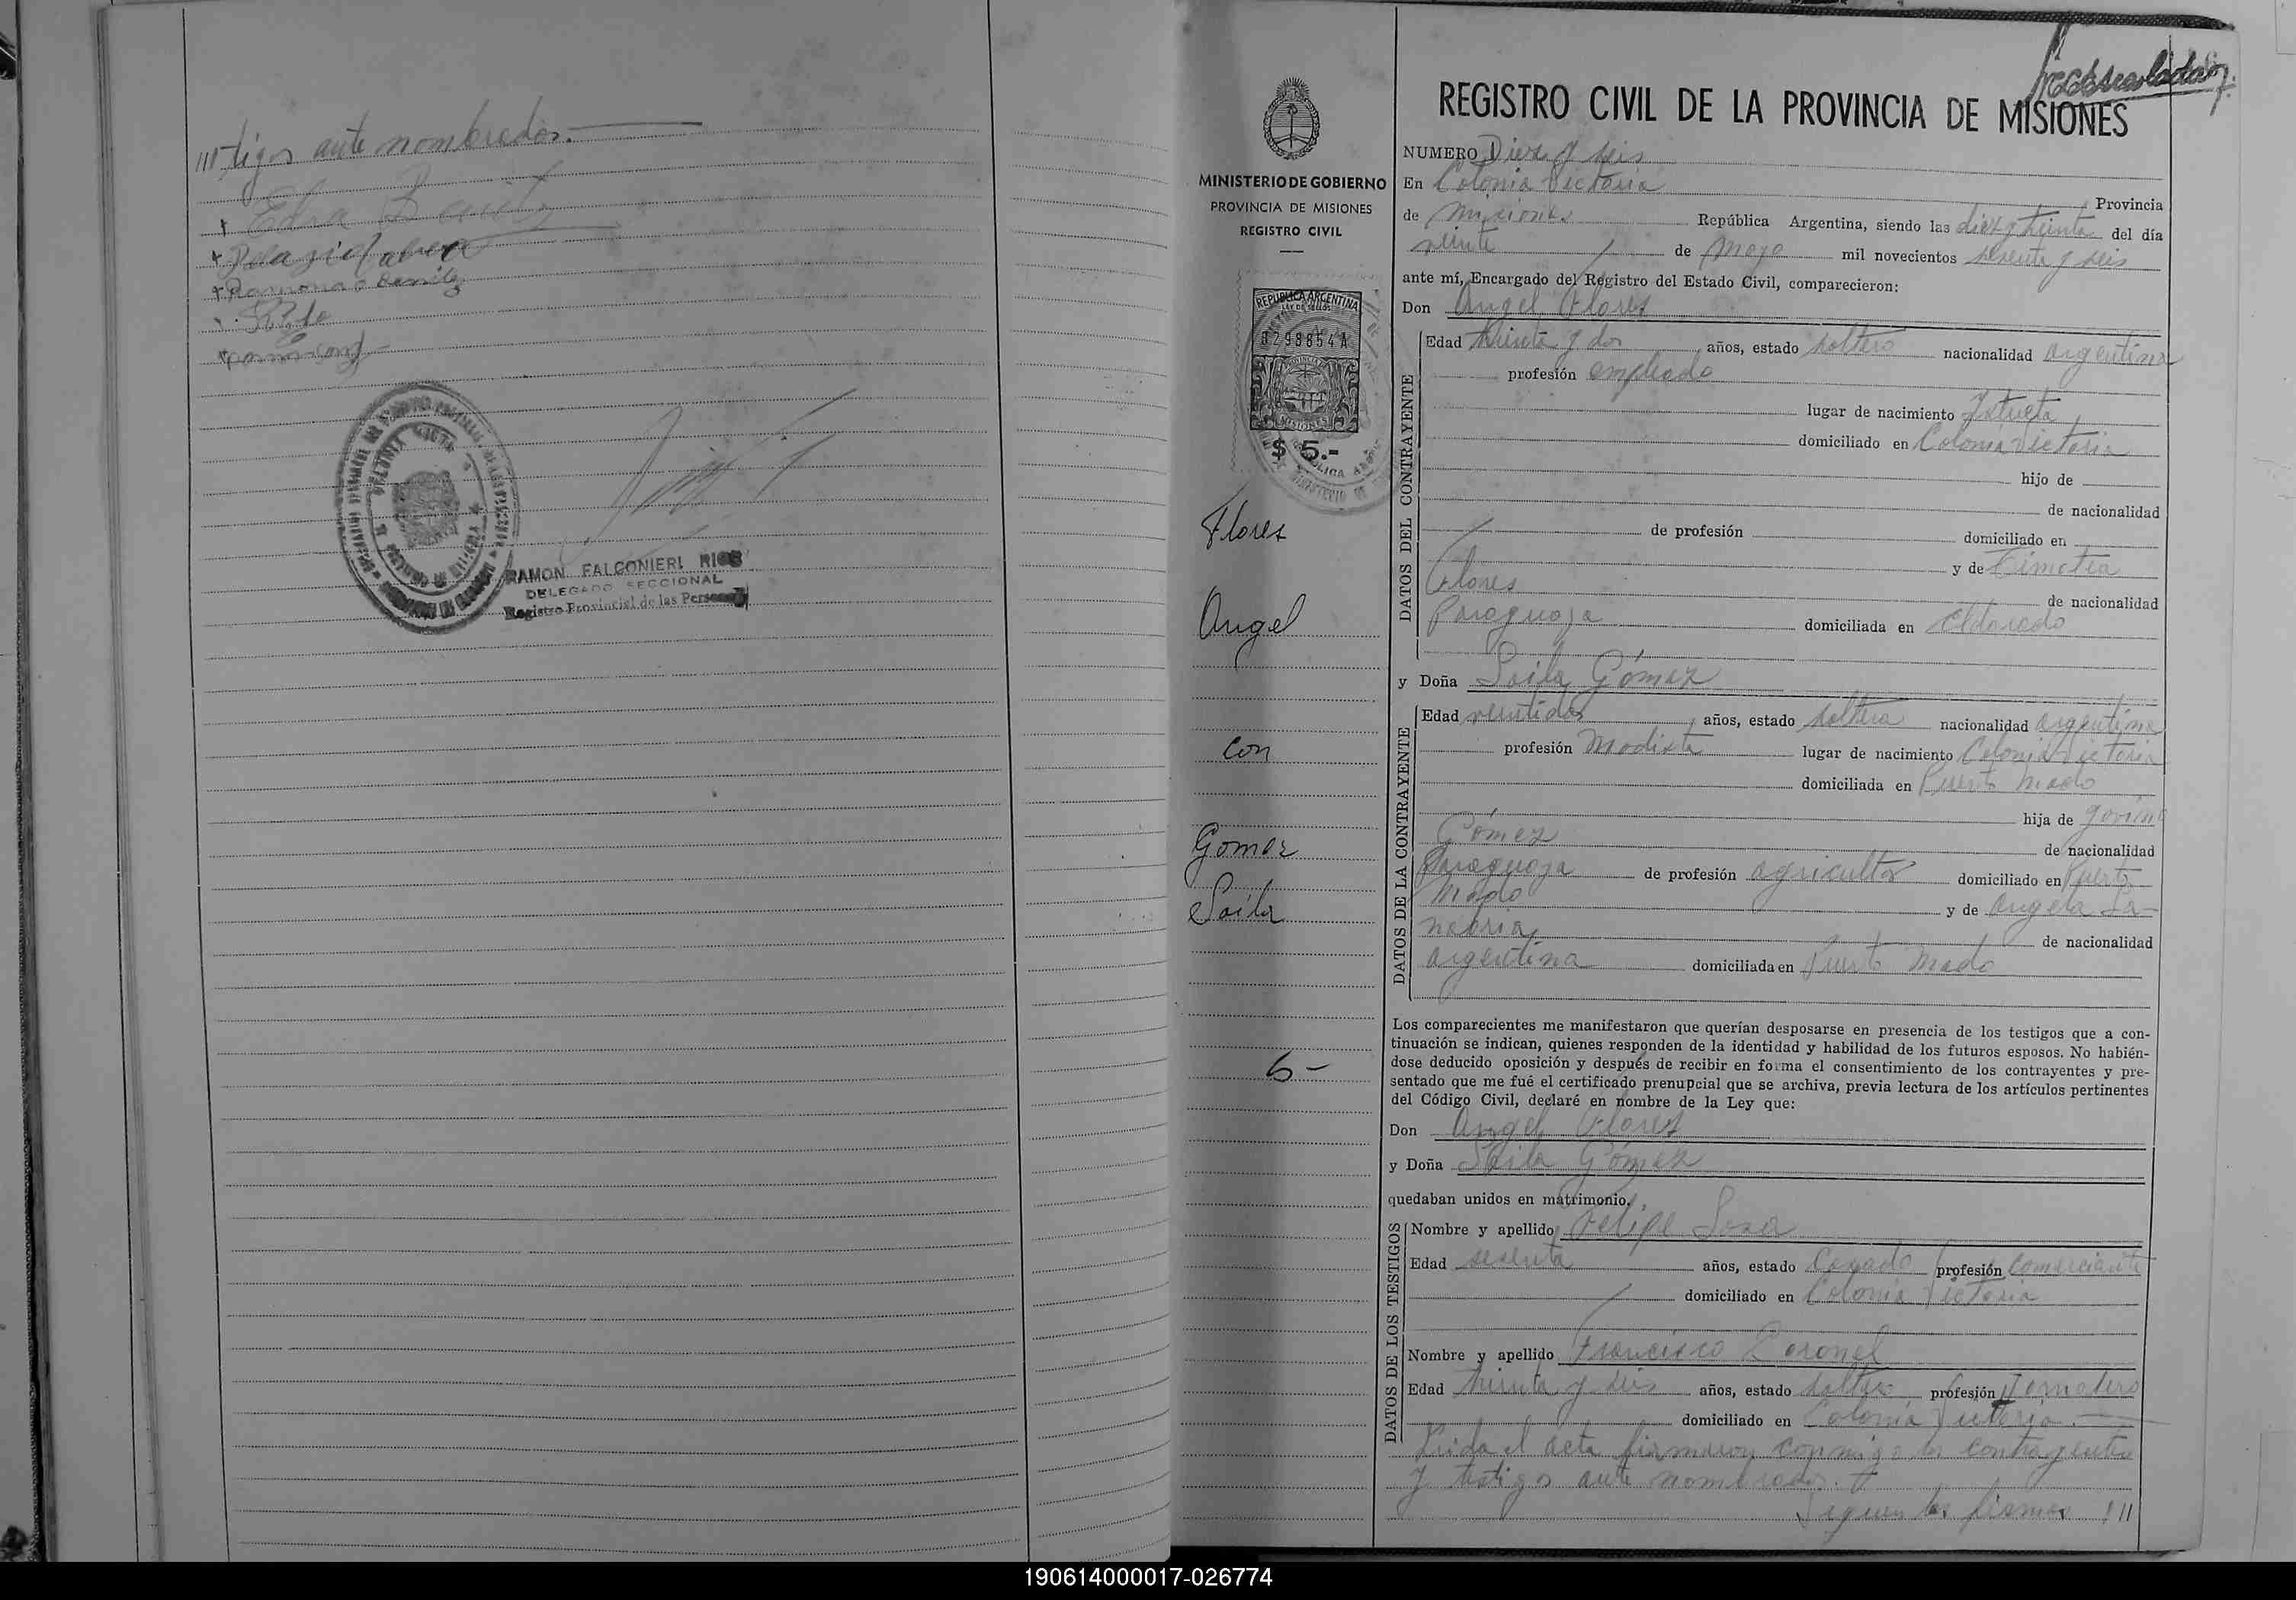 ///tigos ante nombrados.
+ Elsa Benitez
+ Ramona Benitez
RAMON FALCONIERI RIOS
DELEGADO SECCIONAL
Registro Provincial de las Personas
MINISTERIO DE GOBIERNO
PROVINCIA DE MISIONES
REGISTRO CIVIL
REPUBLICA ARGENTINA
LEY DE SELLOS
0298854 A
MISIONES
$ 5.-
Flores
Angel
con
Gomez
Soila
6-
REGISTRO CIVIL DE LA PROVINCIA DE MISIONES
NUMERO Diez y seis
En Colonia Victoria Provincia
de Misiones República Argentina, siendo las diez y treinta del día
veinte de Mayo mil novecientos sesenta y seis
ante mí, Encargado del Registro del Estado Civil, comparecieron:
Don Angel Flores
DATOS DEL CONTRAYENTE
Edad treinta y dos años, estado soltero nacionalidad argentina
profesión empleado
lugar de nacimiento
domiciliado en Colonia Victoria
hijo de
de nacionalidad
de profesión domiciliado en
y de Timotea
Flores de nacionalidad
Paraguaya domiciliada en Eldorado
y Doña Soila Gómez
DATOS DE LA CONTRAYENTE
Edad veintidos años, estado soltera nacionalidad argentina
profesión Modista lugar de nacimiento Colonia Victoria
domiciliada en Puerto Mado
hija de
Gómez de nacionalidad
Paraguaya de profesión agricultor domiciliado en Puerto
Mado y de Angela Sa-
nabria de nacionalidad
argentina domiciliada en Puerto Mado
Los comparecientes me manifestaron que querían desposarse en presencia de los testigos que a con-
tinuación se indican, quienes responden de la identidad y habilidad de los futuros esposos. No habién-
dose deducido oposición y después de recibir en forma el consentimiento de los contrayentes y pre-
sentado que me fué el certificado prenupcial que se archiva, previa lectura de los artículos pertinentes
del Código Civil, declaré en nombre de la Ley que:
Don Angel Flores
y Doña Soila Gómez
quedaban unidos en matrimonio.
DATOS DE LOS TESTIGOS
Nombre y apellido Felipe Sosa
Edad sesenta años, estado Casado profesión Comerciante
domiciliado en Colonia Victoria
Nombre y apellido Francisco Coronel
Edad treinta y seis años, estado soltero profesión Jornalero
domiciliado en Colonia Victoria.
Leida el acta firmaron conmigo los contrayentes
y testigos ante nombrados.
Siguen las firmas ///
190614000017-026774